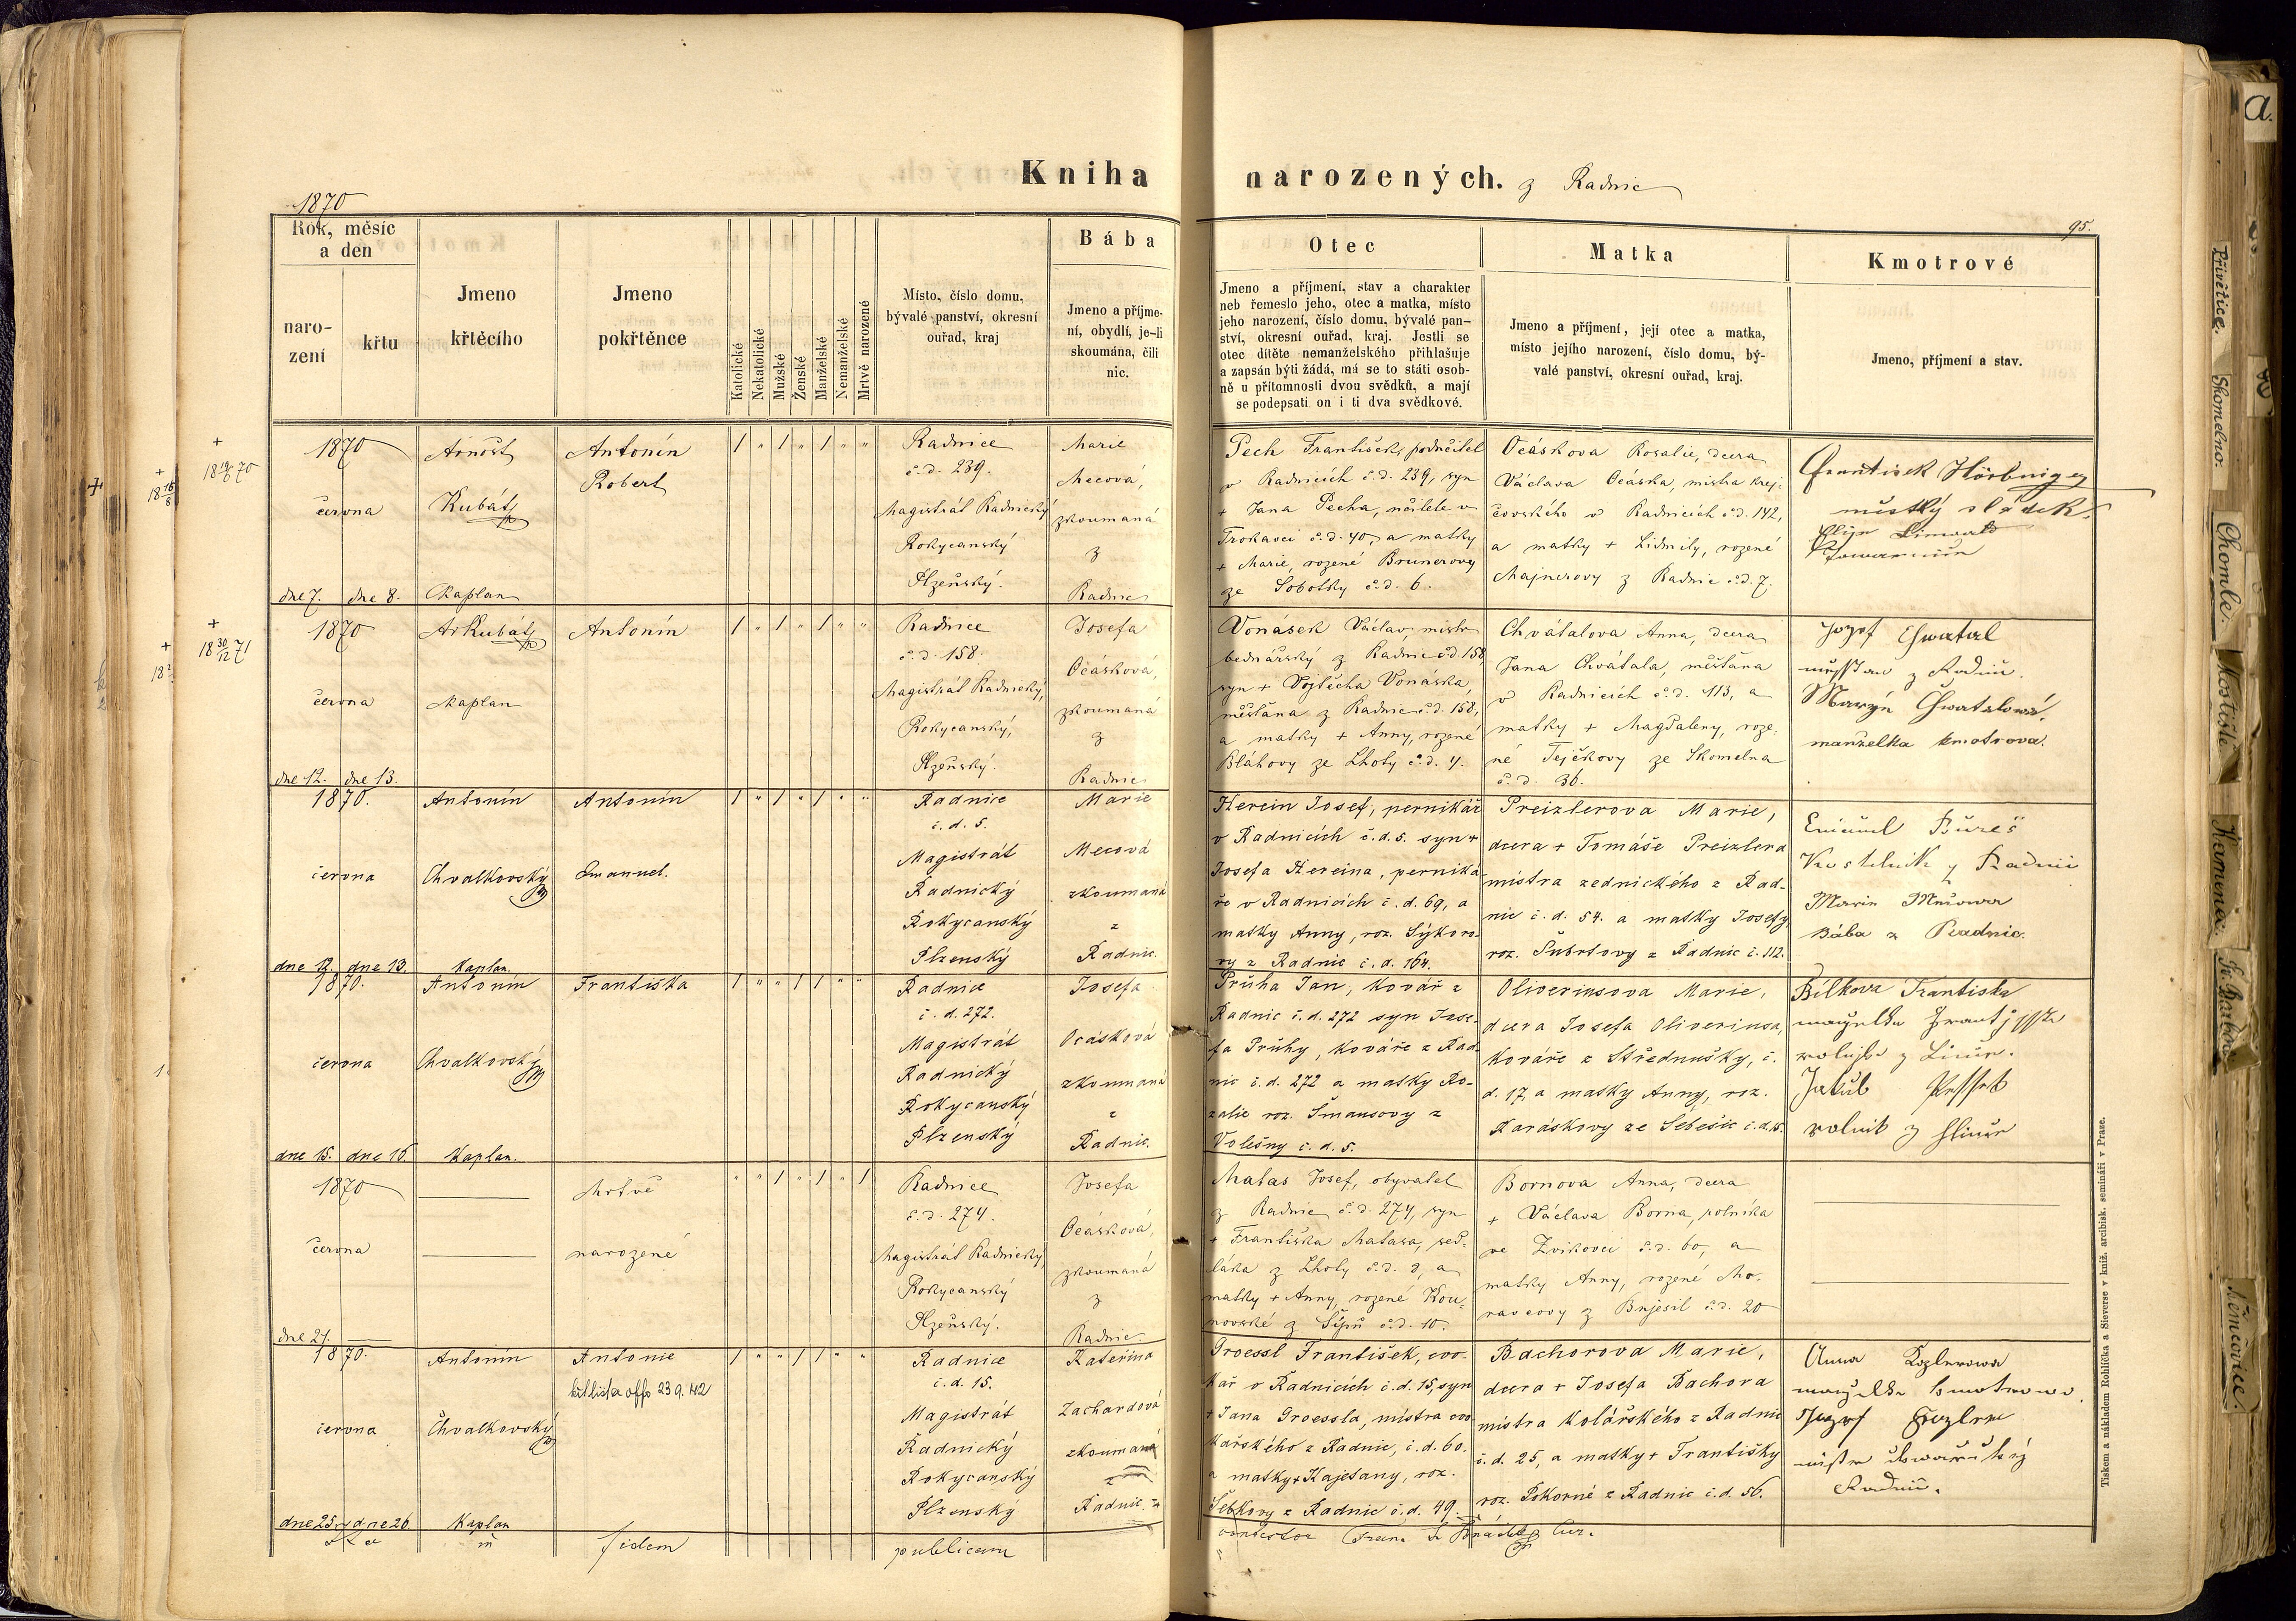 Kniha narozených. z Radnic
1870
95.
Rok, měsíc
a den
naro-
zení
křtu
Jmeno
křtěcího
Jmeno
pokřtěnce
Katolické
Nekatolické
Mužské
Ženské
Manželské
Nemanželské
Mrtvě narozené
Místo, číslo domu,
bývalé panství, okresní
ouřad, kraj
Bába
Jmeno a příjme-
ní, obydlí, je-li
skoumána, čili
nic.
Otec
Jmeno a příjmení, stav a charakter
neb řemeslo jeho, otec a matka, místo
jeho narození, číslo domu, bývalé pan-
ství, okresní ouřad, kraj. Jestli se
otec dítěte nemanželského přihlašuje
a zapsán býti žádá, má se to státi osob-
ně u přítomnosti dvou svědků, a mají
se podepsati on i ti dva svědkové.
Matka
Jmeno a příjmení, její otec a matka,
místo jejího narození, číslo domu, bý-
valé panství, okresní ouřad, kraj.
Kmotrové
Jmeno, příjmení a stav.
1870
června
dne 7. dne 8.
Arnošt
Kubát
Kaplan
Antonín
Robert
1 " 1 " 1 " "
Radnice
č. d. 239.
Magistrát Radnický
Rokycanský
Plzeňský.
Marie
Mecová,
zkoumaná
z
Radnic
Pech František, podučitel
v Radnicích č. d. 239, syn
+ Jana Pecha, učitele v
Trokavci č. d. 40, a matky
+ Marie, rozené Brunerovy
ze Sobotky č. d. 6.
Ocáskova Rosalie, dcera
Václava Ocáska, mistra krej-
čovského v Radnicích č. d. 142,
a matky + Lidmily, rozené
Majnerovy z Radnic č. d. 7.
František Hörbniger
městký sládek.
1870
června
dne 12. dne 13.
Ar Kubát
Kaplan
Antonín
1 " 1 " 1 " "
Radnice
č. d. 158.
Magistrát Radnický,
Rokycanský,
Plzeňský.
Josefa
Ocásková,
zkoumaná
z
Radnic
Vonásek Václav, mistr
bednářský z Radnic č. d. 158,
syn + Vojtěcha Vonáska,
měšťana z Radnic č. d. 158,
a matky + Anny, rozené
Bláhovy ze Lhoty č. d. 4.
Chvátalova Anna, dcera
Jana Chvátala, měšťana
v Radnicích č. d. 113, a
matky + Magdaleny, roze-
né Tejčkovy ze Skomelna
č. d. 36.
Jozef Chwatal
z Radnic.
Chwatalowá,
manželka kmotrova.
1870.
června
dne 12. dne 13.
Antonín
Chvalkovský
Kaplan.
Antonín
Emanuel.
1 " 1 " 1 " "
Radnice
č. d. 5.
Magistrát
Radnický
Rokycanský
Plzenský
Marie
Mecová
zkoumaná
z
Radnic.
Herein Josef, pernikář
v Radnicích č. d. 5. syn +
Josefa Hereina, perniká-
ře v Radnicích č. d. 69, a
matky Anny, roz. Sýkoro-
vy z Radnic č. d. 164.
Preizlerova Marie,
dcera + Tomáše Preizlera
mistra zednického z Rad-
nic č. d. 54. a matky Josefy,
roz. Šubrtovy z Radnic č. 112.
Emanuel Bureš
Kostelník z Radnic
Marie Mecowa
Bába z Radnic.
1870.
června
dne 15. dne 16.
Antonín
Chvalkovský
Kaplan.
Františka
1 " " 1 1 " "
Radnice
č. d. 272.
Magistrát
Radnický
Rokycanský
Plzenský
Josefa
Ocásková
zkoumaná
z
Radnic.
Průha Jan, Kovář z
Radnic č. d. 272 syn Jose-
fa Průhy, Kováře z Rad-
nic č. d. 272 a matky Ro-
zalie roz. Šmausovy z
Volešny č. d. 5.
Oliveriusova Marie,
dcera Josefa Oliveriusa,
Kováře z Střednušky, č.
d. 17, a matky Anny, roz.
Karáskovy ze Sebešic č. d. 15.
Bílkova Františka
Jakub
rolník z
1870
června
dne 21.
Mrtvě
narozené
" " 1 " 1 " 1
Radnice
č. d. 274.
Magistrát Radnický,
Rokycanský
Plzeňský.
Josefa
Ocásková,
zkoumaná
z
Radnic.
Matas Josef, obyvatel
z Radnic č. d. 274, syn
+ Františka Matasa, sed-
láka z Lhoty č. d. 8, a
matky + Anny, rozené Kou-
novské z Šípů č. d. 10.
Bornova Anna, dcera
+ Václava Borna, rolníka
ve Zvikovci č. d. 60, a
matky Anny, rozené Mo-
ravcovy z Bujesil č. d. 20
1870.
června
dne 25. dne 26.
Antonín
Chvalkovský
Kaplan
Antonie
křt lista offo 23 9. 42
1 " " 1 1 " "
Radnice
č. d. 15.
Magistrát
Radnický
Rokycanský
Plzenský
Kateřina
Zachardová
zkoumaná
z
Radnic.
Groessl František, cvo-
kař v Radnicích č. d. 15, syn
+ Jana Groessla, mistra cvo-
kařského z Radnic, č. d. 60.
a matky + Kajetany, roz.
Šebkovy z Radnic č. d. 49.
Bachorova Marie,
dcera + Josefa Bachora
mistra kolářského z Radnic
č. d. 25, a matky + Františky
roz. Pokorné z Radnic č. d. 56.
Anna Kozlerowa
Jozef
fidem
publicam
Tiskem a nákladem Rohlíčka a Sieverse v kníž. arcibisk. semináři v Praze.
a.
Přivětice.
Skomelno.
Chomle.
Mostiště
Kamenec.
Sv. Barbora
Němčovice.